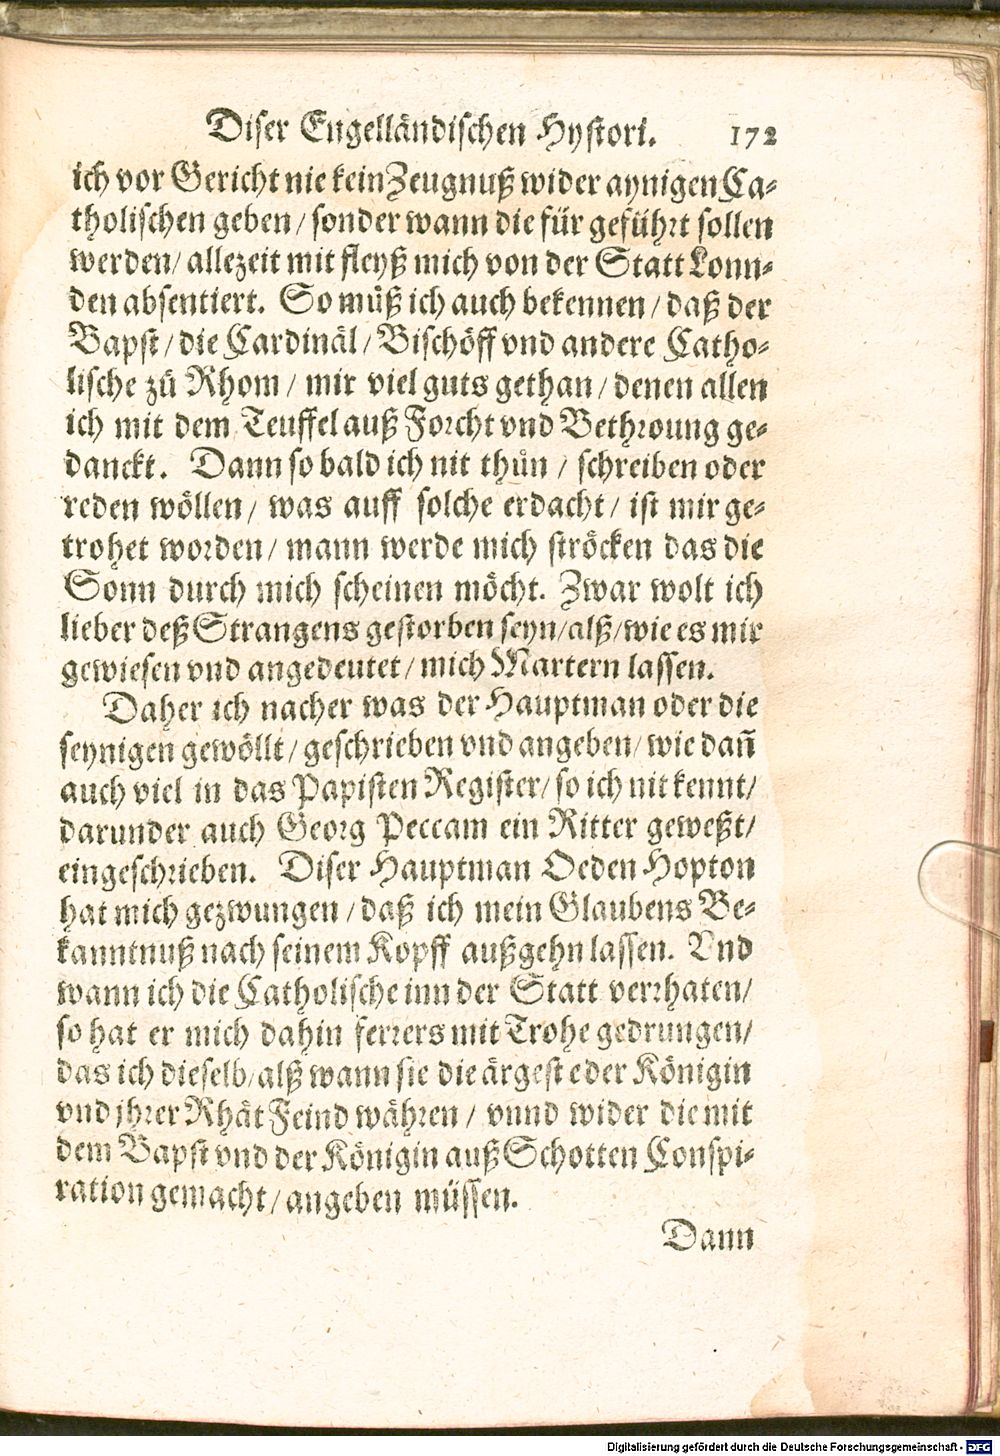 Diser Engelländischen Hystori. 172
ich vor Gericht nie kein Zeugnuß wider aynigen Ca-
tholischen geben / sonder wann die für geführt sollen
werden / allezeit mit fleyß mich von der Statt Lonn-
den absentiert. So müß ich auch bekennen / daß der
Bapst / die Cardinäl / Bischöff vnd andere Catho-
lische zů Rhom / mir viel guts gethan / denen allen
ich mit dem Teuffel auß Forcht vnd Bethroung ge-
danckt. Dann so bald ich nit thůn / schreiben oder
reden wöllen / was auff solche erdacht / ist mir ge-
trohet worden / mann werde mich ströcken das die
Sonn durch mich scheinen möcht. Zwar wolt ich
lieber deß Strangens gestorben seyn / alß / wie es mir
gewiesen vnd angedeutet / mich Martern lassen.
Daher ich nacher was der Hauptman oder die
seynigen gewöllt / geschrieben vnd angeben / wie dañ
auch viel in das Papisten Register / so ich nit kennt /
darunder auch Georg Peccam ein Ritter geweßt /
eingeschrieben. Diser Hauptman Oeden Hopton
hat mich gezwungen / daß ich mein Glaubens Be-
kanntnuß nach seinem Kopff außgehn lassen. Vnd
wann ich die Catholische inn der Statt verrhaten /
so hat er mich dahin ferrers mit Trohe gedrungen /
das ich dieselb / alß wann sie die ärgeste der Königin
vnd jhrer Rhät Feind währen / vnnd wider die mit
dem Bapst vnd der Königin auß Schotten Conspi-
ration gemacht / angeben müssen.
Dann
Digitalisierung gefördert durch die Deutsche Forschungsgemeinschaft - DFG